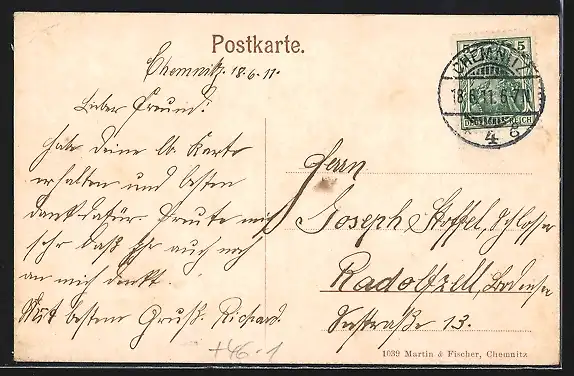 Postkarte.
Chemnitz. 18.6.11.
Lieber Freund!
habe deine lb. Karte
erhalten und besten
dank dafür. Freute mich
sehr daß Ihr auch noch
an mich denkt.
Mit bestem Gruß. Richard.
Herrn
Joseph Stoffel, Schlosser
Radolfzell, Bodensee
Seestraße 13.
5 5
CHEMNITZ
18.6.11.6-7N
DEUTSCHES REICH
* 4
1039 Martin & Fischer, Chemnitz
+46-1